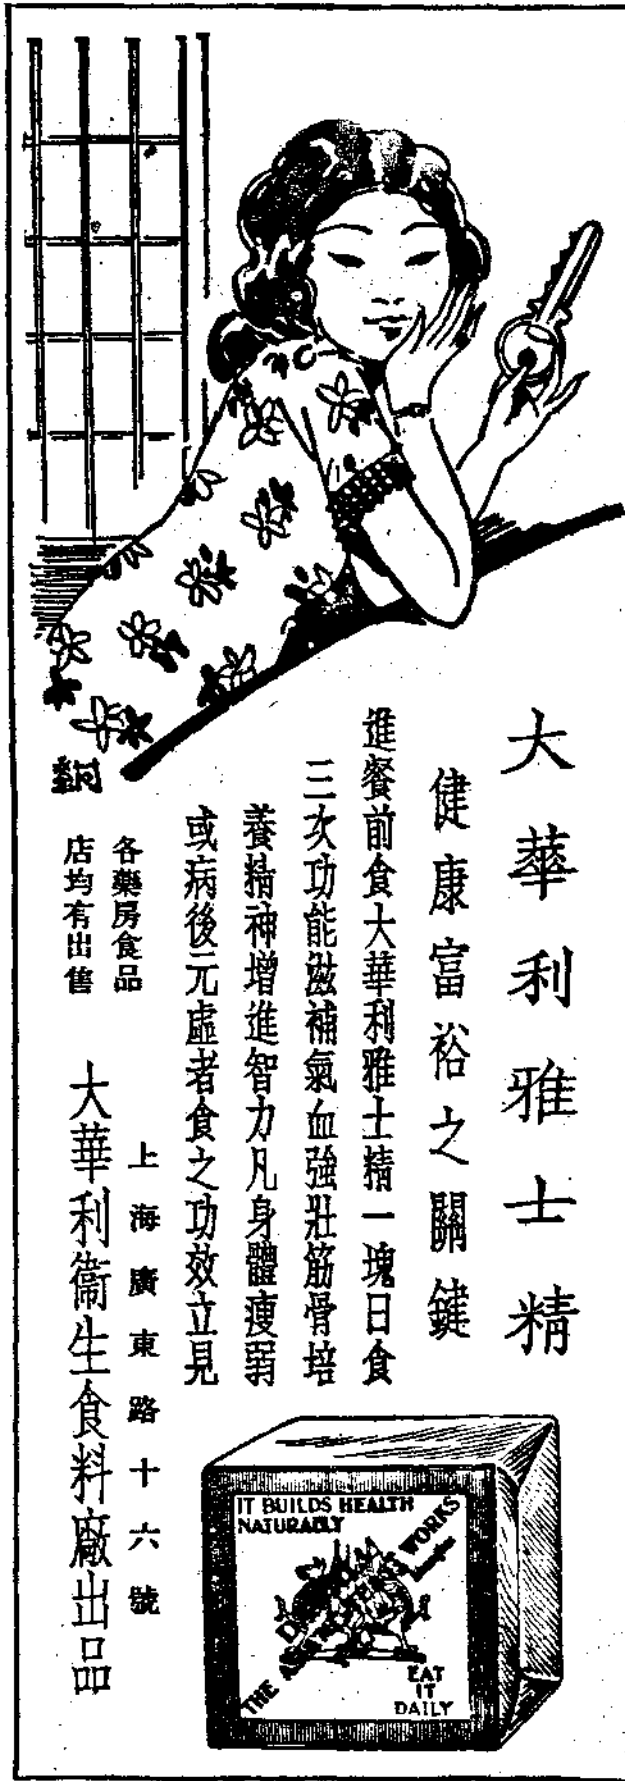 大華利雅士精
健康富裕之關鍵
進餐前食大華利雅士精一塊日食
三次功能滋補氣血強壯筋骨培
養精神增進智力凡身體瘦弱
或病後元虛者食之功效立見
各藥房食品
店均有出售
上海廣東路十六號
大華利衞生食料廠出品
IT BUILDS HEALTH
NATURALLY
THE
WORKS
EAT
IT
DAILY